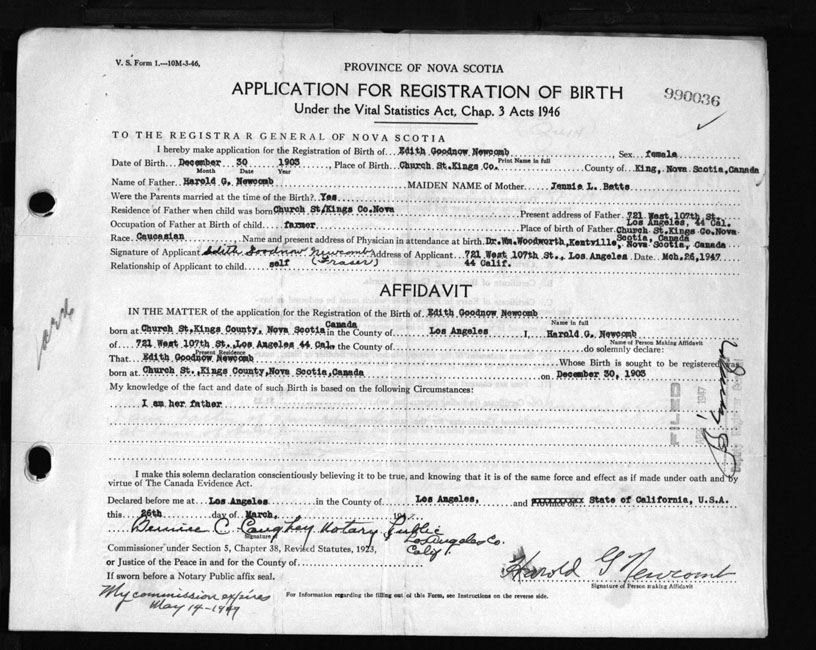 V. S. Form 1.—10M-3-46,
PROVINCE OF NOVA SCOTIA
APPLICATION FOR REGISTRATION OF BIRTH
990036
Under the Vital Statistics Act, Chap. 3 Acts 1946
TO THE REGISTRAR GENERAL OF NOVA SCOTIA
I hereby make application for the Registration of Birth of Edith Goodnow Newcomb, Sex female
Print Name in full
Date of Birth December 30 1903, Place of Birth Church St. Kings Co. County of King, Nova Scotia, Canada
Month Date Year
Name of Father Harold G. Newcomb MAIDEN NAME of Mother Jennie L. Batts
Were the Parents married at the time of the Birth? Yes
Residence of Father when child was born Church St/Kings Co.Nova Present address of Father 721 West 107th St.
Los Angeles, 44 Cal.
Occupation of Father at Birth of child farmer Place of birth of Father Church St.Kings Co.Nova
Scotia, Canada
Race Caucasian Name and present address of Physician in attendance at birth Dr.Wm.Woodworth,Kentville, Nova Scotia, Canada
Signature of Applicant Edith Goodnow Newcomb Address of Applicant 721 West 107th St., Los Angeles Date Mch.26,1947
(Fraser)
44 Calif.
Relationship of Applicant to child self
AFFIDAVIT
IN THE MATTER of the application for the Registration of the Birth of Edith Goodnow Newcomb
Name in full
born at Church St.Kings County, Nova Scotia Canada in the County of Los Angeles I, Harold G. Newcomb
Name of Person Making Affidavit
of 721 West 107th St.,Los Angeles 44 Cal. the County of do solemnly declare:
Present Residence
That Edith Goodnow Newcomb Whose Birth is sought to be registered
born at Church St.,Kings County,Nova Scotia,Canada on December 30, 1903
My knowledge of the fact and date of such Birth is based on the following Circumstances:
I am her father
FILED
1947
I make this solemn declaration conscientiously believing it to be true, and knowing that it is of the same force and effect as if made under oath and by
virtue of The Canada Evidence Act.
Declared before me at Los Angeles in the County of Los Angeles, and Province xx State of California, U.S.A.
this 26th day of March, 1947
Bernice C. Caughey Notary Public
Signature of
Los Angeles Co.
Calif
Commissioner under Section 5, Chapter 38, Revised Statutes, 1923,
or Justice of the Peace in and for the County of
Harold G Newcomb
Signature of Person making Affidavit
If sworn before a Notary Public affix seal.
My commission expires
May 14-1947
For Information regarding the filling out of this Form, see Instructions on the reverse side.